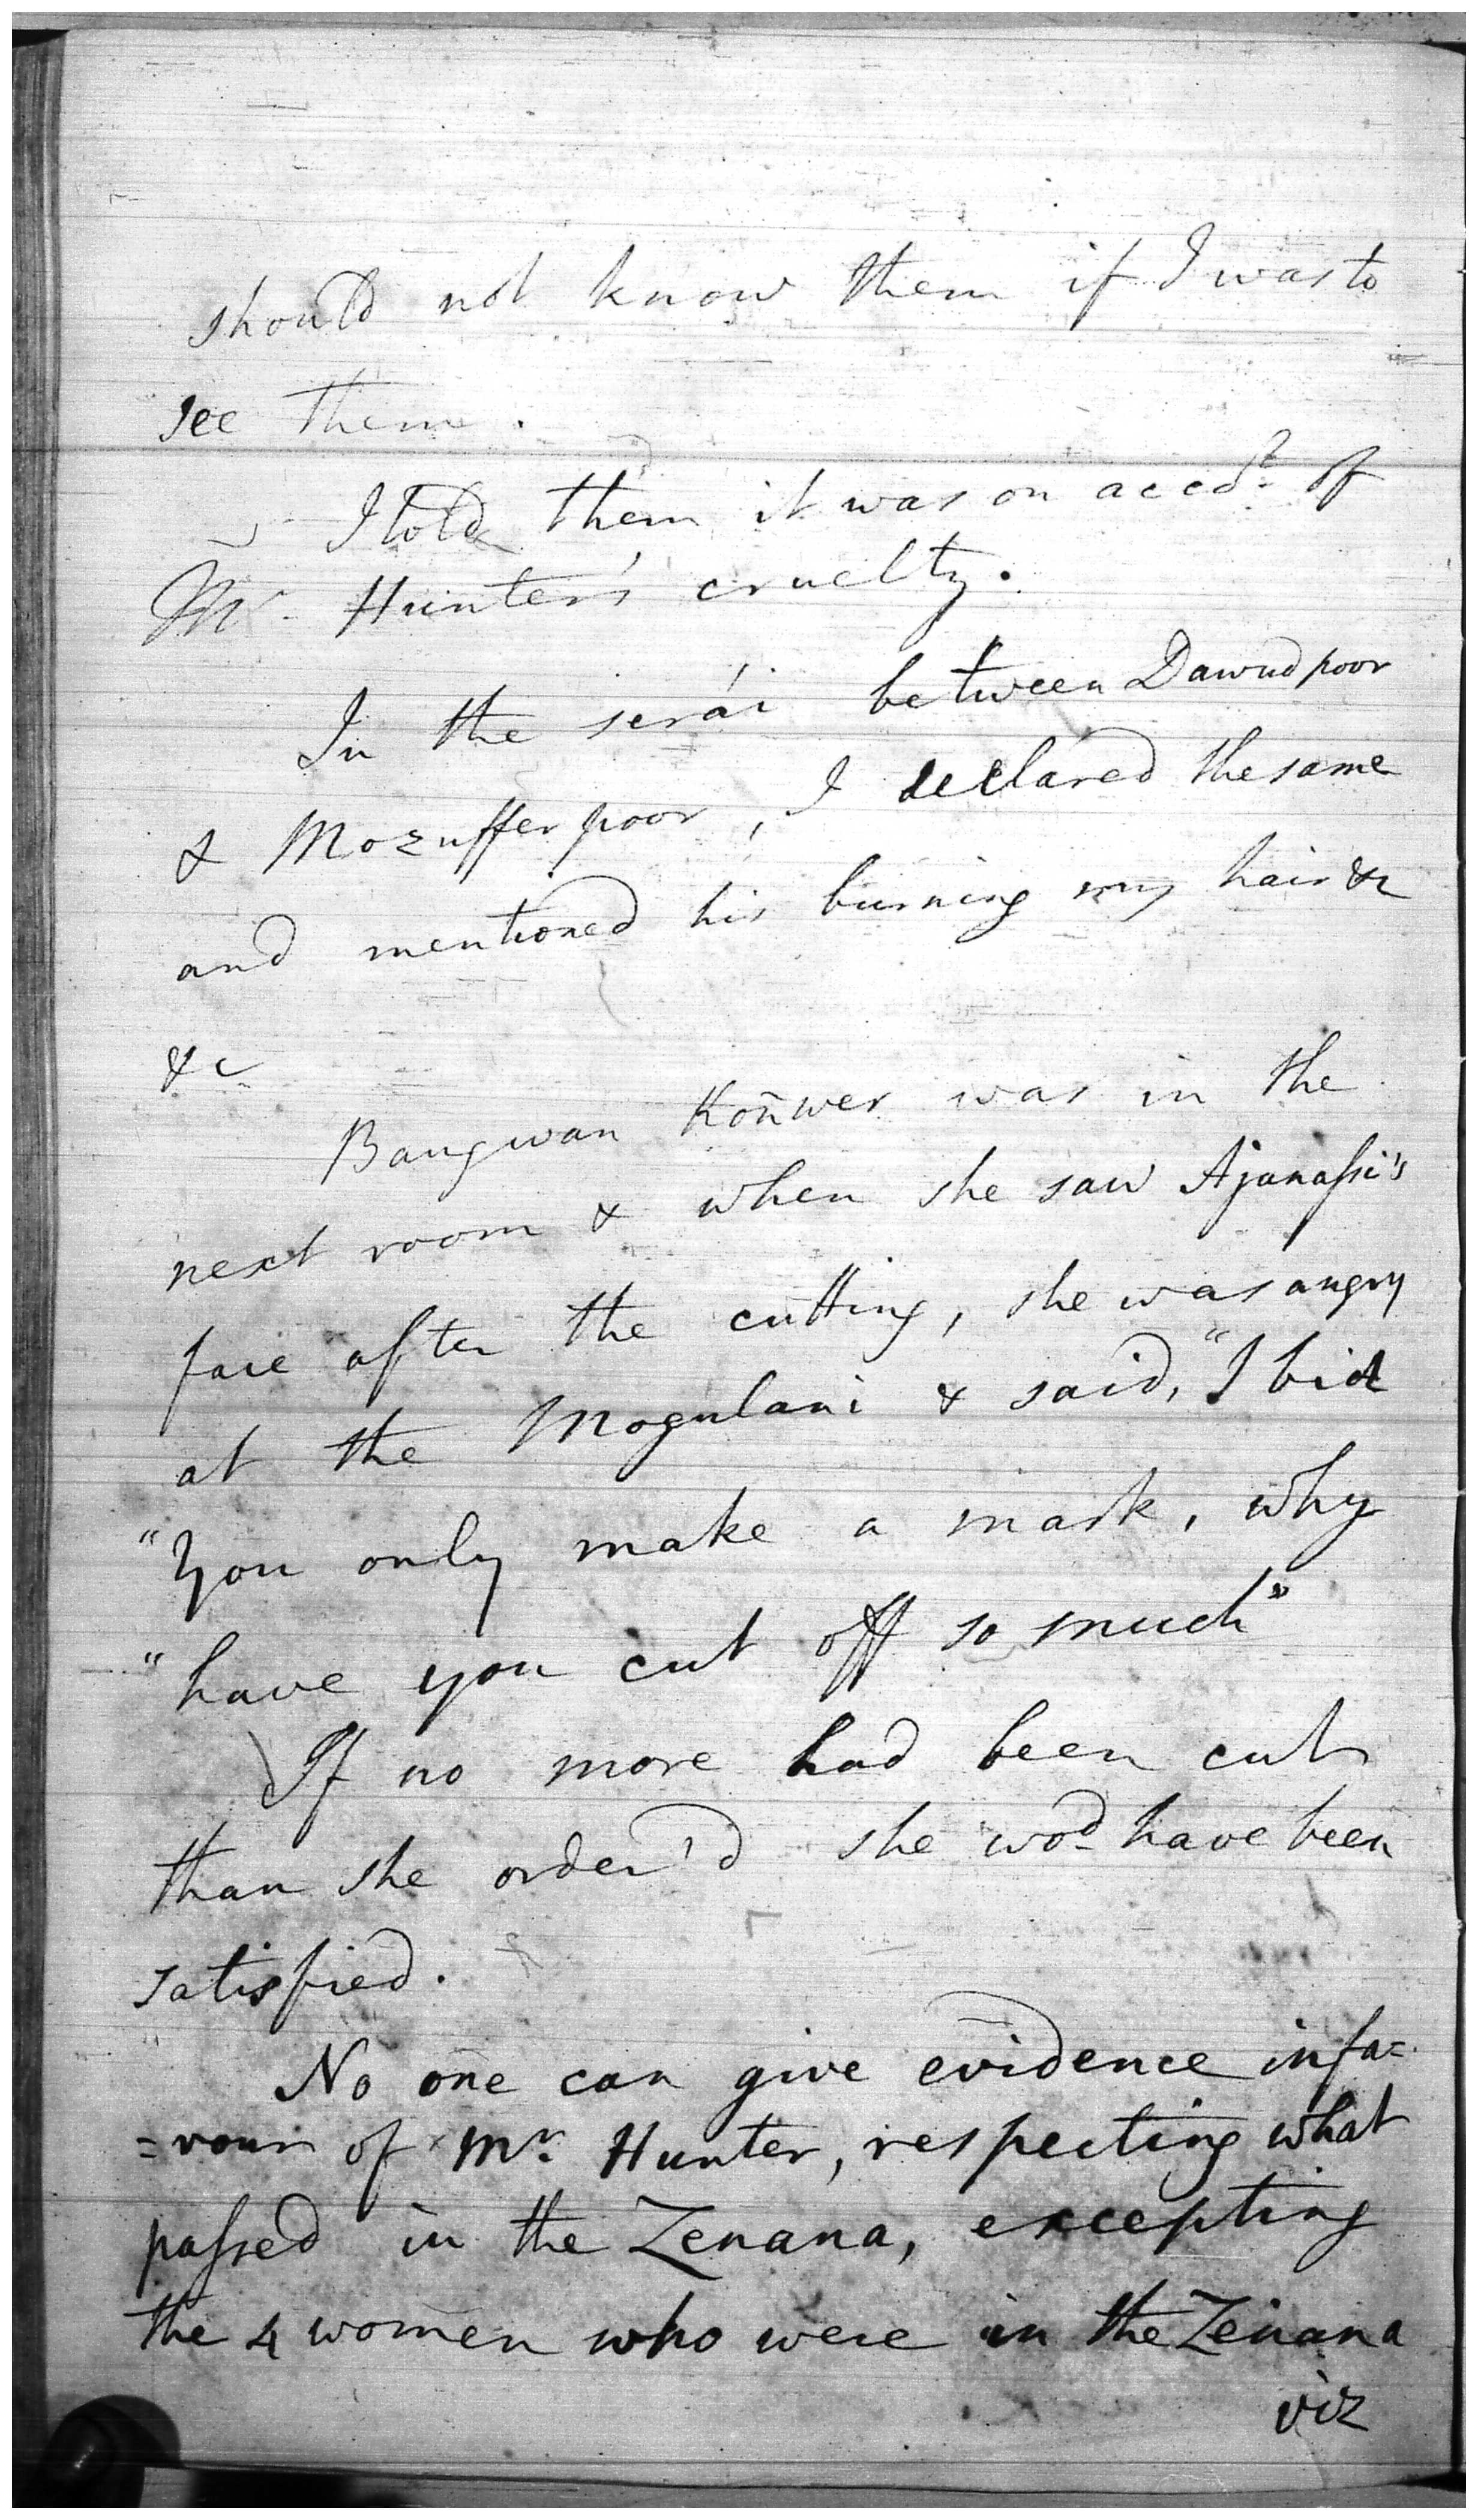 should not know them if I was to
see them.
I told them it was on acco.t of
Mr. Hunter's cruelty.
In the serái between Dawud poor
& Mozuffer poor, I declared the same
and mentioned his burning my hair &c
&c
Baugwan Koñwer was in the
next room & when she saw Ajanassi's
face after the cutting, she was angry
at the Mogulani & said, "I bid
"you only make a mark, why
"have you cut off so much"
If no more had been cut
than she order'd she wod have been
satisfied.
No one can give evidence in fa=
=vour of Mr. Hunter, respecting what
passed in the Zenana, excepting
the 4 women who were in the Zenana
viz